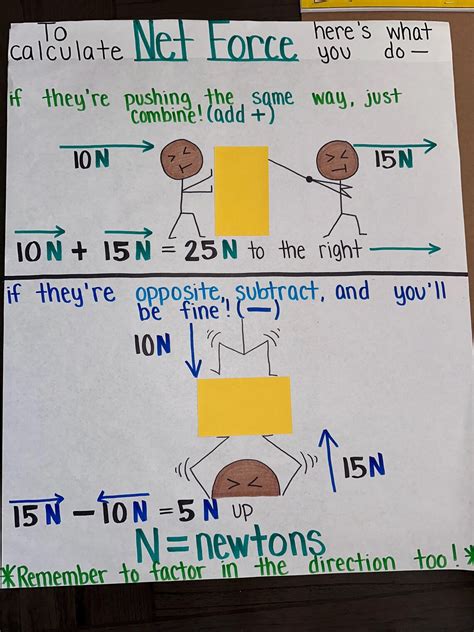 To calculate Net Force here's what you do —
if they're pushing the same way, just
combine! (add +)
10N
15N
10N + 15N = 25N to the right
if they're opposite, subtract, and you'll
be fine! (—)
10N
15N
15N — 10N = 5N up
N = newtons
*Remember to factor in the direction too! *